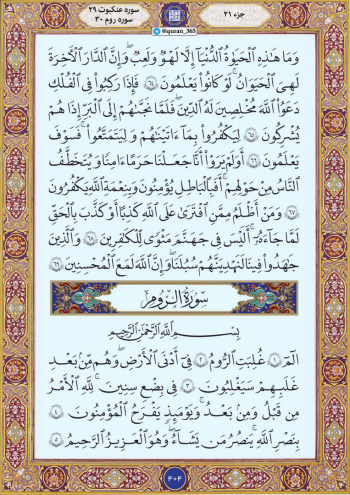 سوره عنکبوت ۲۹
سوره روم ۳۰
@quran_365
جزء ۲۱
وَمَا هَٰذِهِ ٱلْحَيَوٰةُ ٱلدُّنْيَآ إِلَّا لَهْوٌ وَلَعِبٌ ۚ وَإِنَّ ٱلدَّارَ ٱلْأَخِرَةَ
لَهِىَ ٱلْحَيَوَانُ ۚ لَوْ كَانُوا۟ يَعْلَمُونَ ۝٦٤ فَإِذَا رَكِبُوا۟ فِى ٱلْفُلْكِ
دَعَوُا۟ ٱللَّهَ مُخْلِصِينَ لَهُ ٱلدِّينَ فَلَمَّا نَجَّىٰهُمْ إِلَى ٱلْبَرِّ إِذَا هُمْ
يُشْرِكُونَ ۝٦٥ لِيَكْفُرُوا۟ بِمَآ ءَاتَيْنَٰهُمْ وَلِيَتَمَتَّعُوا۟ ۖ فَسَوْفَ
يَعْلَمُونَ ۝٦٦ أَوَلَمْ يَرَوْا۟ أَنَّا جَعَلْنَا حَرَمًا ءَامِنًا وَيُتَخَطَّفُ
ٱلنَّاسُ مِنْ حَوْلِهِمْ ۚ أَفَبِٱلْبَٰطِلِ يُؤْمِنُونَ وَبِنِعْمَةِ ٱللَّهِ يَكْفُرُونَ
۝٦٧ وَمَنْ أَظْلَمُ مِمَّنِ ٱفْتَرَىٰ عَلَى ٱللَّهِ كَذِبًا أَوْ كَذَّبَ بِٱلْحَقِّ
لَمَّا جَآءَهُۥٓ ۚ أَلَيْسَ فِى جَهَنَّمَ مَثْوًى لِّلْكَٰفِرِينَ ۝٦٨ وَٱلَّذِينَ
جَٰهَدُوا۟ فِينَا لَنَهْدِيَنَّهُمْ سُبُلَنَا ۚ وَإِنَّ ٱللَّهَ لَمَعَ ٱلْمُحْسِنِينَ ۝٦٩
سُورَةُ الرُّومِ
بِسْمِ ٱللَّهِ ٱلرَّحْمَٰنِ ٱلرَّحِيمِ
الٓمٓ ۝١ غُلِبَتِ ٱلرُّومُ ۝٢ فِىٓ أَدْنَى ٱلْأَرْضِ وَهُم مِّنۢ بَعْدِ
غَلَبِهِمْ سَيَغْلِبُونَ ۝٣ فِى بِضْعِ سِنِينَ ۗ لِلَّهِ ٱلْأَمْرُ
مِن قَبْلُ وَمِنۢ بَعْدُ ۚ وَيَوْمَئِذٍ يَفْرَحُ ٱلْمُؤْمِنُونَ ۝٤
بِنَصْرِ ٱللَّهِ ۚ يَنصُرُ مَن يَشَآءُ ۖ وَهُوَ ٱلْعَزِيزُ ٱلرَّحِيمُ ۝٥
۴۰۴